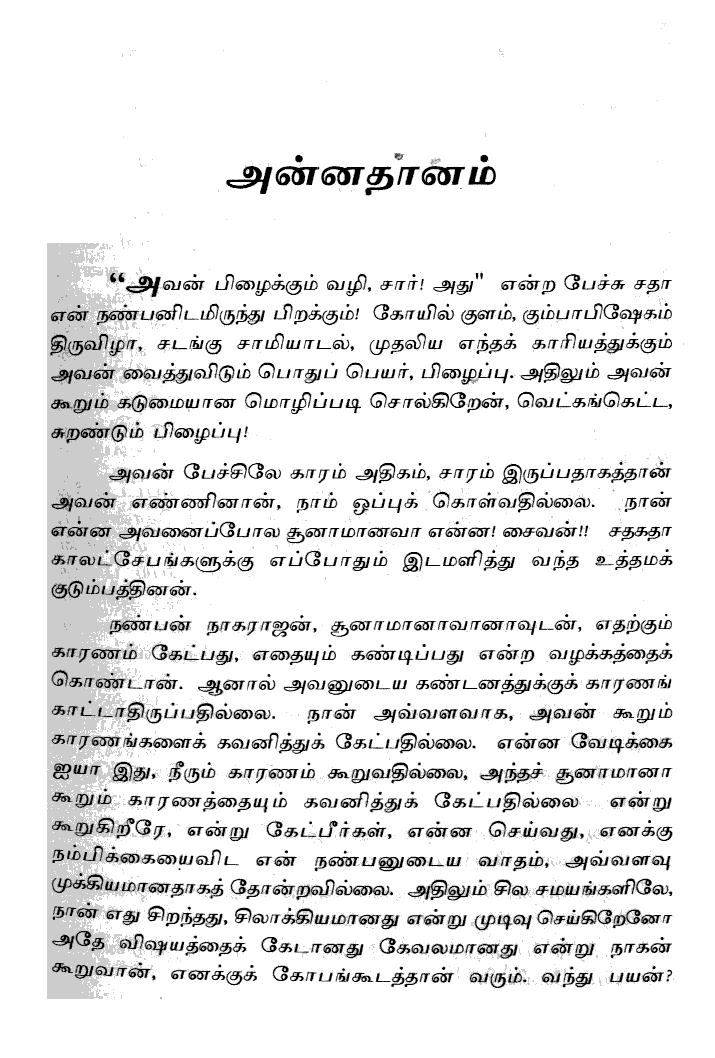 அன்னதானம்
“அவன் பிழைக்கும் வழி, சார்! அது" என்ற பேச்சு சதா
என் நண்பனிடமிருந்து பிறக்கும்! கோயில் குளம், கும்பாபிஷேகம்
திருவிழா, சடங்கு சாமியாடல், முதலிய எந்தக் காரியத்துக்கும்
அவன் வைத்துவிடும் பொதுப் பெயர், பிழைப்பு. அதிலும் அவன்
கூறும் கடுமையான மொழிப்படி சொல்கிறேன், வெட்கங்கெட்ட,
சுறண்டும் பிழைப்பு!
அவன் பேச்சிலே காரம் அதிகம், சாரம் இருப்பதாகத்தான்
அவன் எண்ணினான், நாம் ஒப்புக் கொள்வதில்லை. நான்
என்ன அவனைப்போல சூனாமானவா என்ன! சைவன்!! சதகதா
காலட்சேபங்களுக்கு எப்போதும் இடமளித்து வந்த உத்தமக்
குடும்பத்தினன்.
நண்பன் நாகராஜன், சூனாமானாவானாவுடன், எதற்கும்
காரணம் கேட்பது, எதையும் கண்டிப்பது என்ற வழக்கத்தைக்
கொண்டான். ஆனால் அவனுடைய கண்டனத்துக்குக் காரணங்
காட்டாதிருப்பதில்லை. நான் அவ்வளவாக, அவன் கூறும்
காரணங்களைக் கவனித்துக் கேட்பதில்லை. என்ன வேடிக்கை
ஐயா இது, நீரும் காரணம் கூறுவதில்லை, அந்தச் சூனாமானா
கூறும் காரணத்தையும் கவனித்துக் கேட்பதில்லை என்று
கூறுகிறீரே, என்று கேட்பீர்கள், என்ன செய்வது, எனக்கு
நம்பிக்கையைவிட என் நண்பனுடைய வாதம், அவ்வளவு
முக்கியமானதாகத் தோன்றவில்லை. அதிலும் சில சமயங்களிலே,
நான் எது சிறந்தது, சிலாக்கியமானது என்று முடிவு செய்கிறேனோ
அதே விஷயத்தைக் கேடானது கேவலமானது என்று நாகன்
கூறுவான், எனக்குக் கோபங்கூடத்தான் வரும். வந்து பயன்?